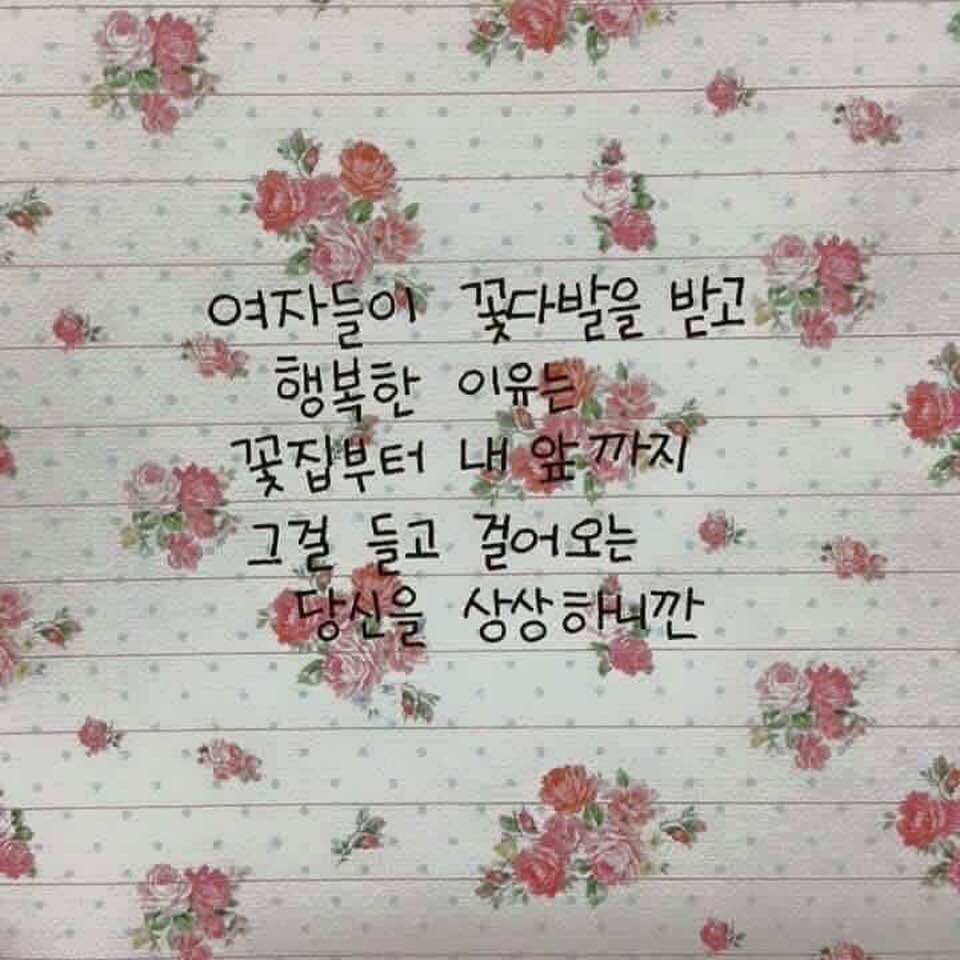 여자들이 꽃다발을 받고
행복한 이유는
꽃집부터 내 앞까지
그걸 들고 걸어오는
당신을 상상하니깐